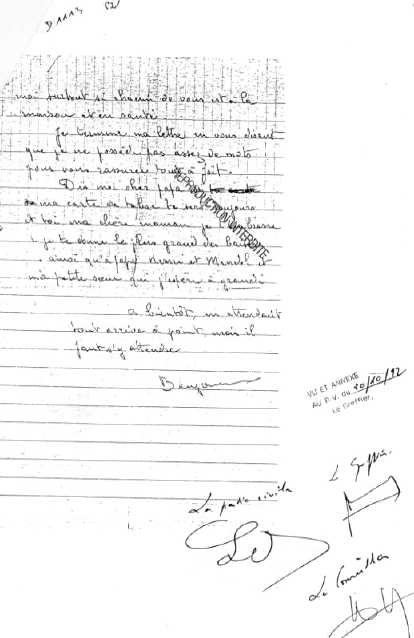 D1113 (2)
moi surtout si chacun de vous est à la
maison et en santé
Je termine ma lettre en vous disant
que je ne possède pas assez de mots
pour vous rassurer tout à fait.
Dis moi cher papa
ma carte de tabac te sers toujours
et toi ma chère maman je
je te donne le plus grand des
ainsi qu'à papy et
ma petite sœur qui j'espère à grandi
REPRODUCTION INTERDITE
A bientôt, en attendant
tout arrive à point, mais il
faut s'y attendre
VU ET ANNEXE
AU P.V. DU 20/10/92
Le Greffier,
Le Greffier
La partie civile